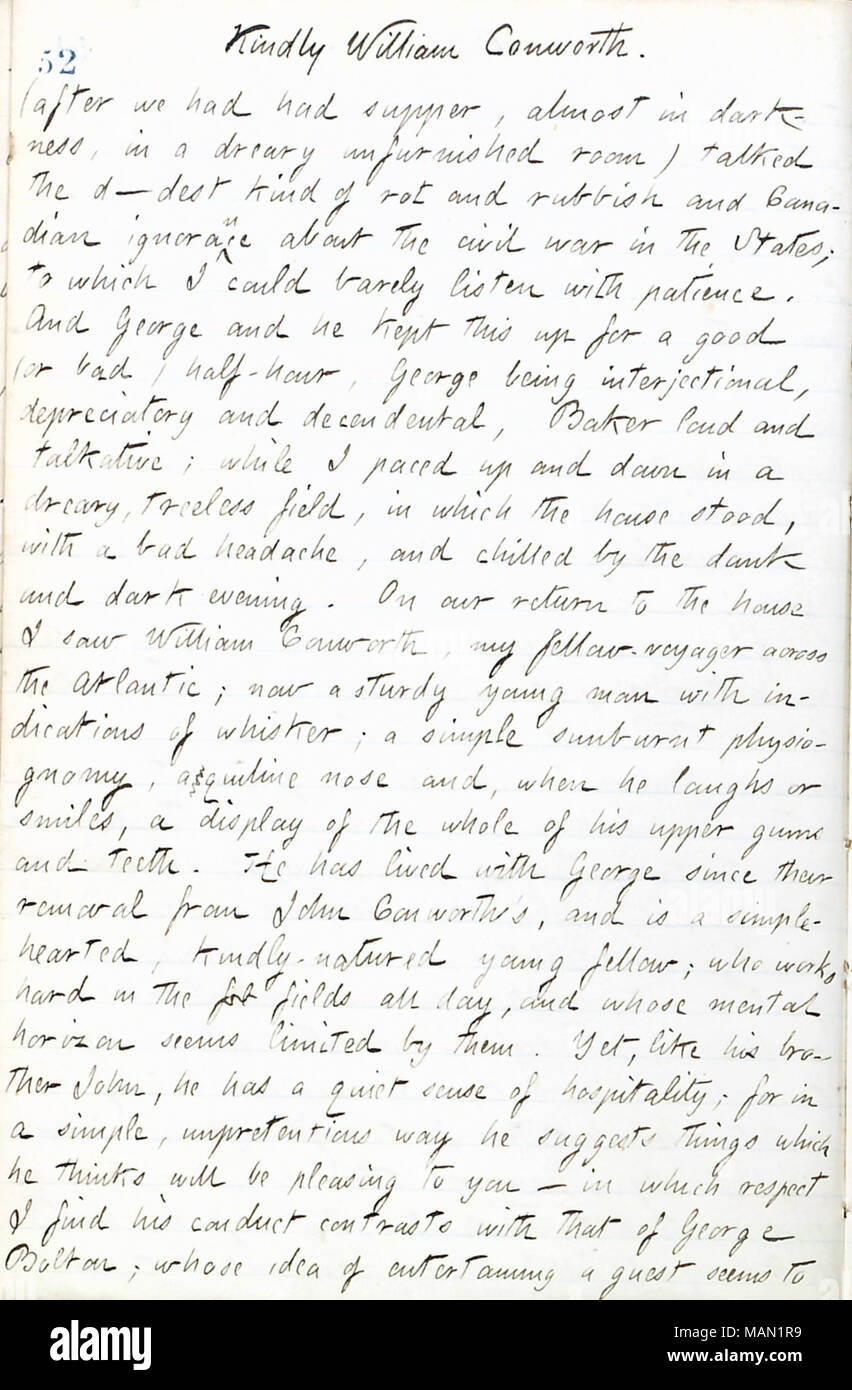 52
Kindly William Conworth.
(after we had had supper, almost in dark-
ness, in a dreary unfurnished room) talked
the d—dest kind of rot and rubbish and Cana-
dian ignorance about the civil war in the States;
to which I could barely listen with patience.
And George and he kept this up for a good
(or bad) half-hour, George being interjectional,
depreciatory and decendental, Baker loud and
talkative; while I paced up and down in a
dreary, treeless field, in which the house stood,
with a bad headache, and chilled by the dank
and dark evening. On our return to the house
I saw William Conworth, my fellow-voyager across
the Atlantic; now a sturdy young man with in-
dications of whisker; a simple sunburnt physio-
gnomy, aquiline nose and, when he laughs or
smiles, a display of the whole of his upper gums
and teeth. He has lived with George since their
removal from John Conworth's, and is a simple-
hearted, kindly-natured young fellow; who works
hard in the fields all day, and whose mental
horizon seems limited by them. Yet, like his bro-
ther John, he has a quiet sense of hospitality; for in
a simple, unpretentious way he suggests things which
he thinks will be pleasing to you — in which respect
I find his conduct contrasts with that of George
Bolton; whose idea of entertaining a guest seems to
alamy
Image ID: MAN1R9
www.alamy.com